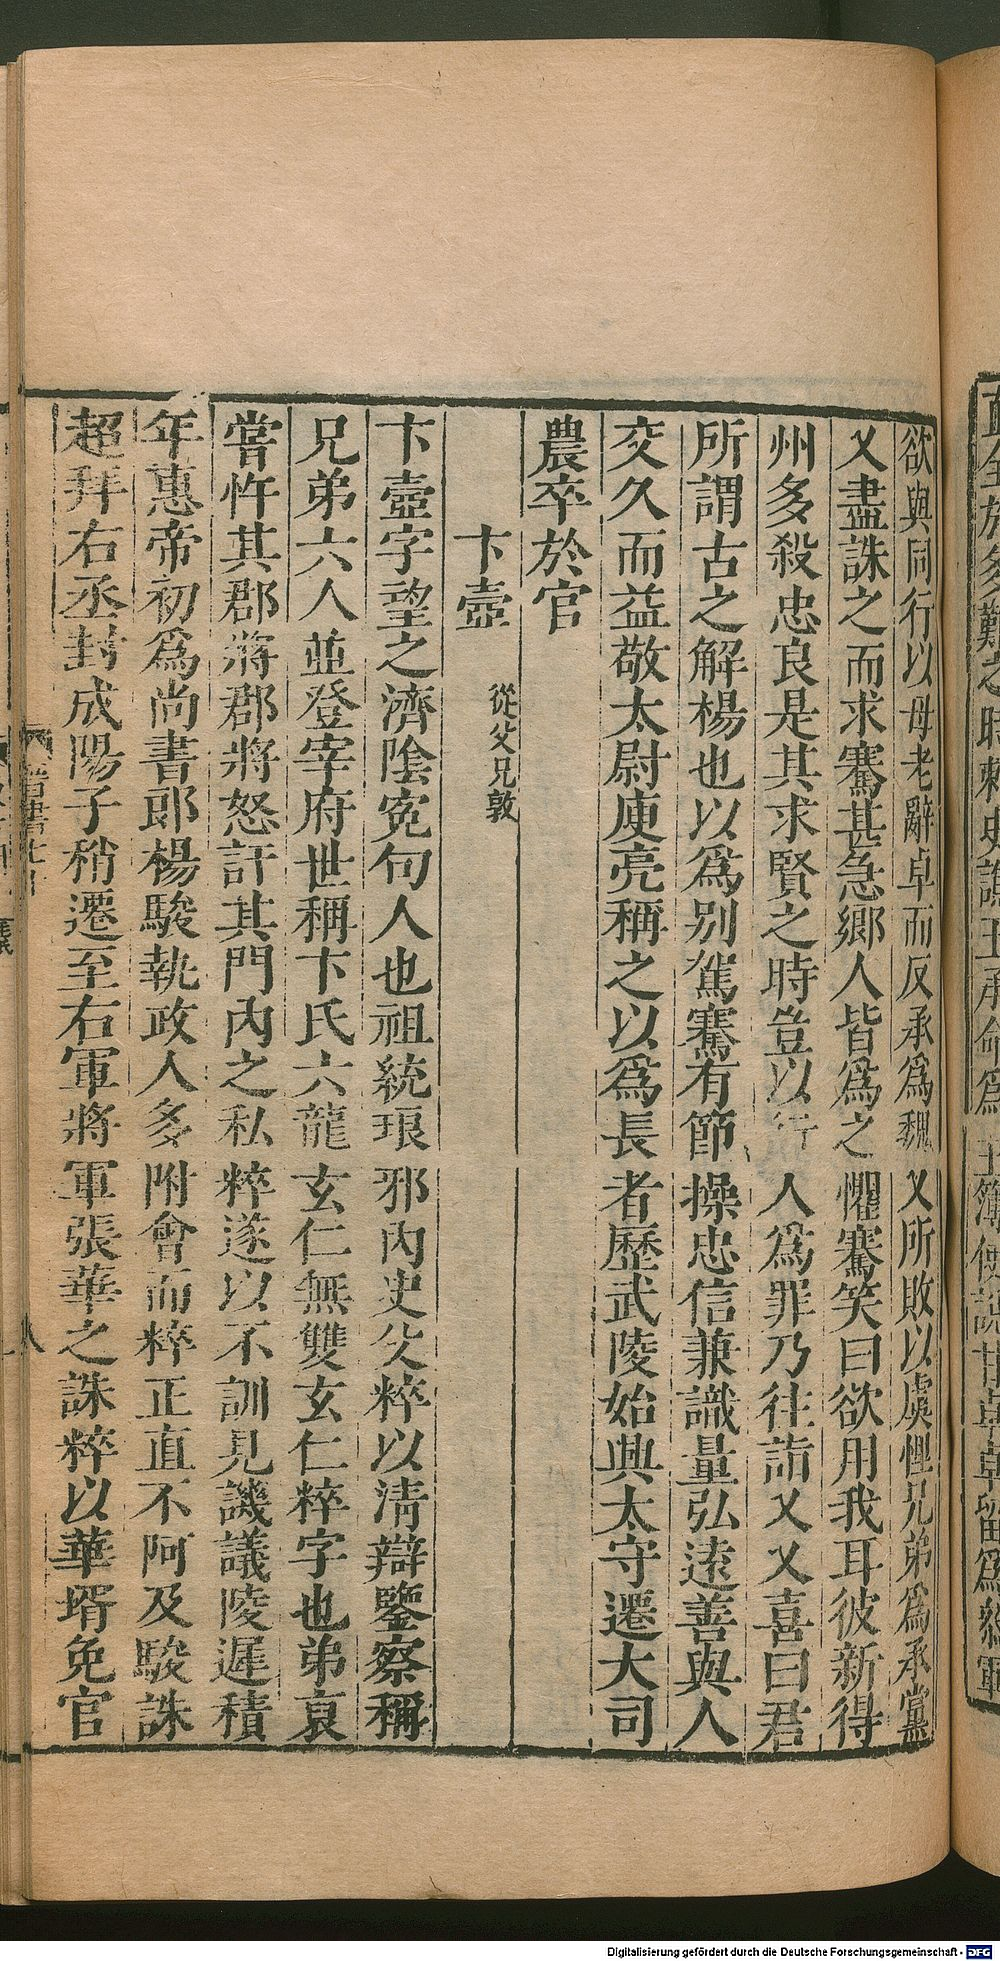 直全於多難之時刺史譙王承命爲主簿使說甘卓卓留爲參軍
欲與同行以母老辭卓而反承爲魏乂所敗以虞悝兄弟爲承黨
乂盡誅之而求騫甚急鄉人皆爲之懼騫笑曰欲用我耳彼新得
州多殺忠良是其求賢之時豈以行人爲罪乃往詣乂乂喜曰君
所謂古之解楊也以爲別駕騫有節操忠信兼識量弘遠善與人
交久而益敬太尉庾亮稱之以爲長者歷武陵始興太守遷大司
農卒於官
卞壼 從父兄敦
卞壼字望之濟陰寃句人也祖統琅邪內史父粹以清辯鑒察稱
兄弟六人並登宰府世稱卞氏六龍玄仁無雙玄仁粹字也弟裒
嘗忤其郡將郡將怒訐其門內之私粹遂以不訓見譏議陵遲積
年惠帝初爲尚書郎楊駿執政人多附會而粹正直不阿及駿誅
超拜右丞封成陽子稍遷至右軍將軍張華之誅粹以華壻免官
晉書七十
八
Digitalisierung gefördert durch die Deutsche Forschungsgemeinschaft - DFG